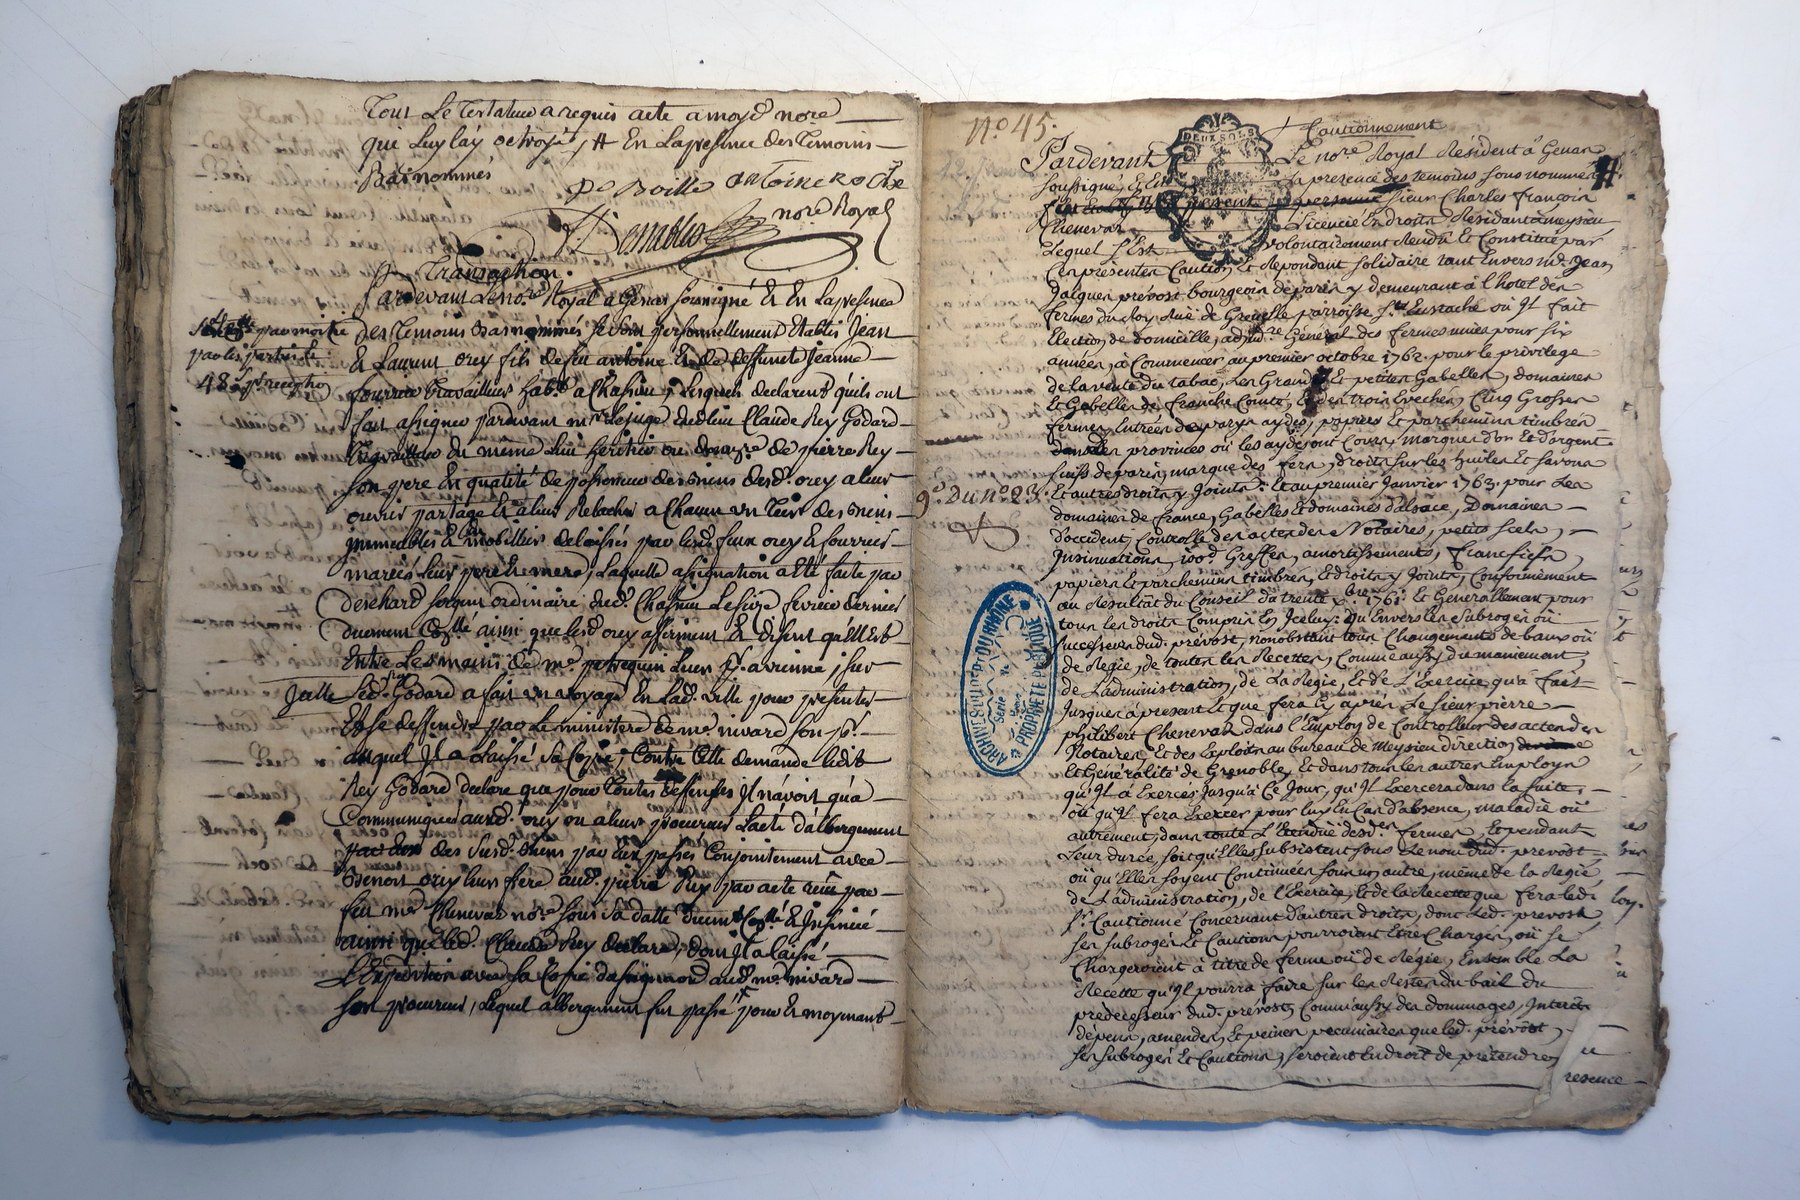 Tout Le Testateur a requis acte a moyd nore
que luy lay octroyé, # En La presence des Temoins
Bas nommés
antoine Roche
nore Royal
Transaction.
Pardevant Le nore Royal a Genas soussigné Et En La presence
des Temoins Bas nommés se sont personnellement Etablis Jean
par moitié
& Laurent orey fils de feu antoine Et de deffunte Jeanne
par les parties
fourrier travailleurs habts a Chassieu, Lesquels declarent quils ont
48
fait assigner pardevant mr Le Juge dud lieu Claude Rey Godard
Travailleur du meme Lieu heritier de pierre Rey
son pere En qualité de possesseur des Biens desd. orey a leur
ouvrir partage & a leur Relacher a Chacun un tiers des Biens
immeubles & mobilliers delaissés par lesd feux orey & fourrier
mariés Leurs pere & mere, Laquelle assignation a Eté faite par
dechard sergent ordinaire dud. Chassieu Le seize fevrier dernier
duement Conllé ainsi que lesd orey afferment & disent qu'Ell Est
Entre Les mains de me petrequin Leur pr. a vienne, sur
Jcelle Led. Godard a fait un voyage En Lad. ville pour presenter
Et se deffendre par Le ministere de me nivard son pr.
auquel Jl a Laissé Sa Copie, Contre Cette demande Ledit
Rey Godard declare que pour toutes deffenses Jl n'avoit qu'a
Communiquer auxd. orey ou a leur procureur L'acte d'albergement
des susd. Biens par Eux passés Conjointement avec
Benoit orey leur frere aud. pierre Rey par acte reçu par
feu me Chenevas nore sous sa datte duement Conllé & Insinué
ainsi que led. Claude Rey declare, dont Jl a laissé
L'Expedition avec sa Copie d'assignation aud me nivard
son procureur, Lequel albergement fut passé pour & moyenant
No. 45.
DEUX SOLS
Cautionnement
Pardevant Le nore Royal Résident à Genas
soussigné, Et En La presence des temoins sous nommés #
sieur Charles françois
Chenevas Licencié En droits, Residant a meysieu
Lequel s'Est volontairement Rendu Et Constitué par
Ces presentes Caution, Et Repondant solidaire tant Envers mr. Jean
Jacques prévost bourgeois de paris y demeurant à l'hotel des
fermes du Roy Rue de Grenelle parroisse St. Eustache où Jl fait
Election de domicille, adjdre Général des fermes unies pour six
années, à Commencer au premier octobre 1762. pour le privilege
de la vente du tabac, Les Grandes Et petites Gabelles, domaines
Et Gabelles de franche Comté, Et des trois Evechés, Cinq Grosses
fermes, Entrées de paris, aydes, papiers Et parchemins timbrés
dans les provinces où les aydes ont Cours, marques d'or Et d'argent
suifs de paris, marque des fers, droits sur les huiles Et savons
Et autres droits y Joints: Et au premier Janvier 1763. pour Les
Du no. 23.
domaines de france, Gabelles Et domaines d'alsace, Domaines
d'occident, Controlle des actes des Notaires, petits scels,
Insinuations, 100e. Greffes, amortissements, francfiefs,
papiers Et parchemins timbrés, Et droits y Joints, Conformément
au Résultat du Conseil du trente xbre. 1761. Et Generallement pour
tous les droits Compris En Jceluy: qu'Envers les subrogés où
successeurs dud. prévost, nonobstant tous Changements de baux où
de Régie, de toutes les Recettes, Comme aussy du maniement,
de L'administration, de La Régie, Et de L'Exercice qu'a fait
Jusques à present Et que fera Cy après Le sieur pierre
philibert Chenevas dans l'Employ de Controlleur des actes des
Notaires, Et des Exploits au bureau de Meysieu direction
Et Généralité de Grenoble, Et dans tous les autres Employs
qu'Jl a Exercés Jusqu'à Ce Jour, qu'Jl Exercera dans la suite,
où qu'Jl fera Exercer pour luy En Cas d'absence, maladie où
autrement, dans toute L'Etendue desdes. fermes, Et pendant
Leur durée, soit qu'Elles subsistent sous Le nom dud. prevost,
où qu'Elles soyent Continuées sous un autre, même de la Régie
de L'administration, de l'Exercice, Et de la Recette que fera led.
sr. Cautionné Concernant d'autres droits, dont Led. prevost
ses subrogés Et Cautions pourroient Etre Chargés, où se
Chargeroient à titre de ferme où de Régie, Ensemble La
Recette qu'Jl pourra faire sur les Restes du bail du
predecesseur dud. prévost, Comm'aussy des dommages, Interets
dépens, amendes, Et peines pecuniaires que led. prévost,
ses subrogés Et Cautions, seroient En droit de prétendre,
resence
ARCHIVES
PROPRIÉTÉ PUBLIQUE
Série